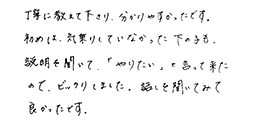 丁寧に教えて下さり、分かりやすかったです。
初めは、気乗りしていなかった下の子も、
説明を聞いて、「やりたい」と言って来た
ので、ビックリしました。話しを聞いてみて
良かったです。